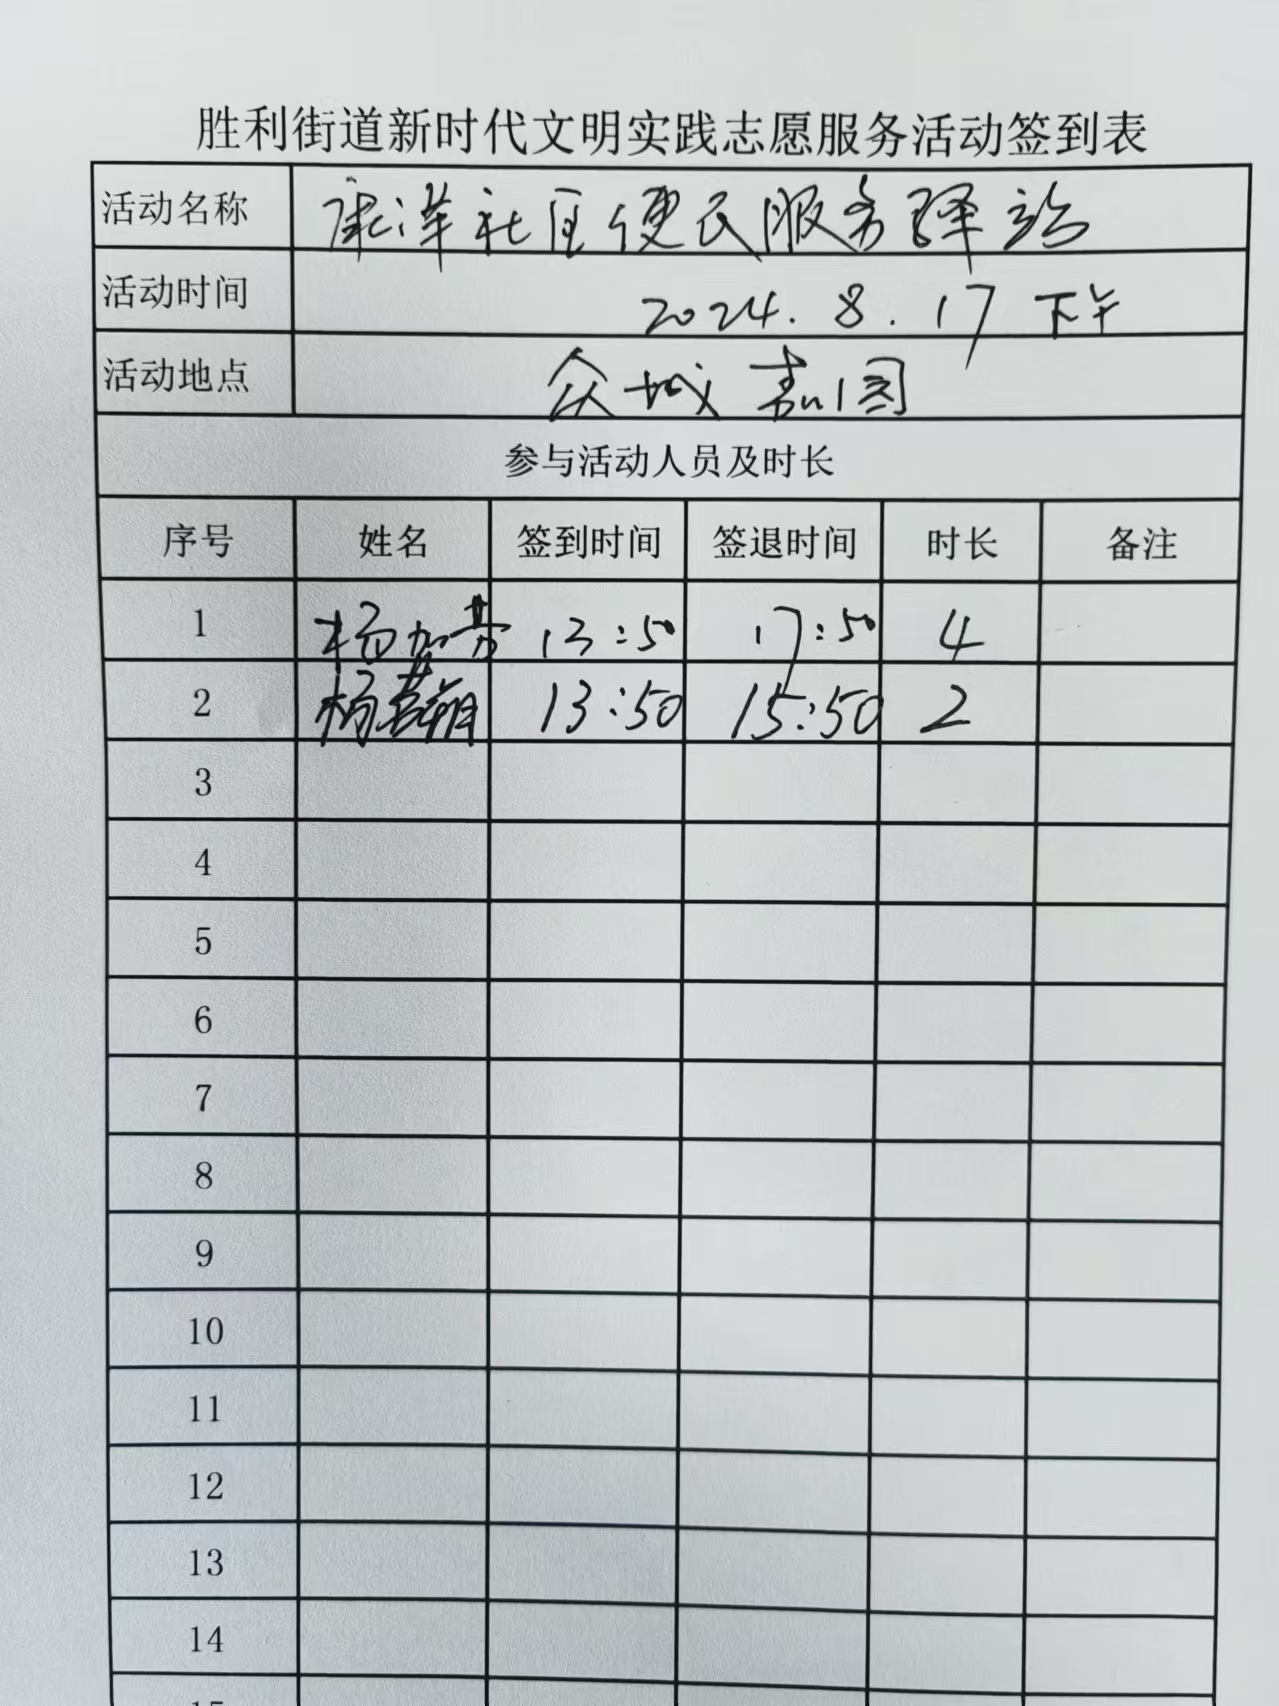 胜利街道新时代文明实践志愿服务活动签到表
活动名称 康洋社区便民服务驿站
活动时间 2024.8.17 下午
活动地点 众城嘉园
参与活动人员及时长
序号 姓名 签到时间 签退时间 时长 备注
1 杨加芳 13:50 17:50 4
2 杨 13:50 15:50 2
3
4
5
6
7
8
9
10
11
12
13
14
15